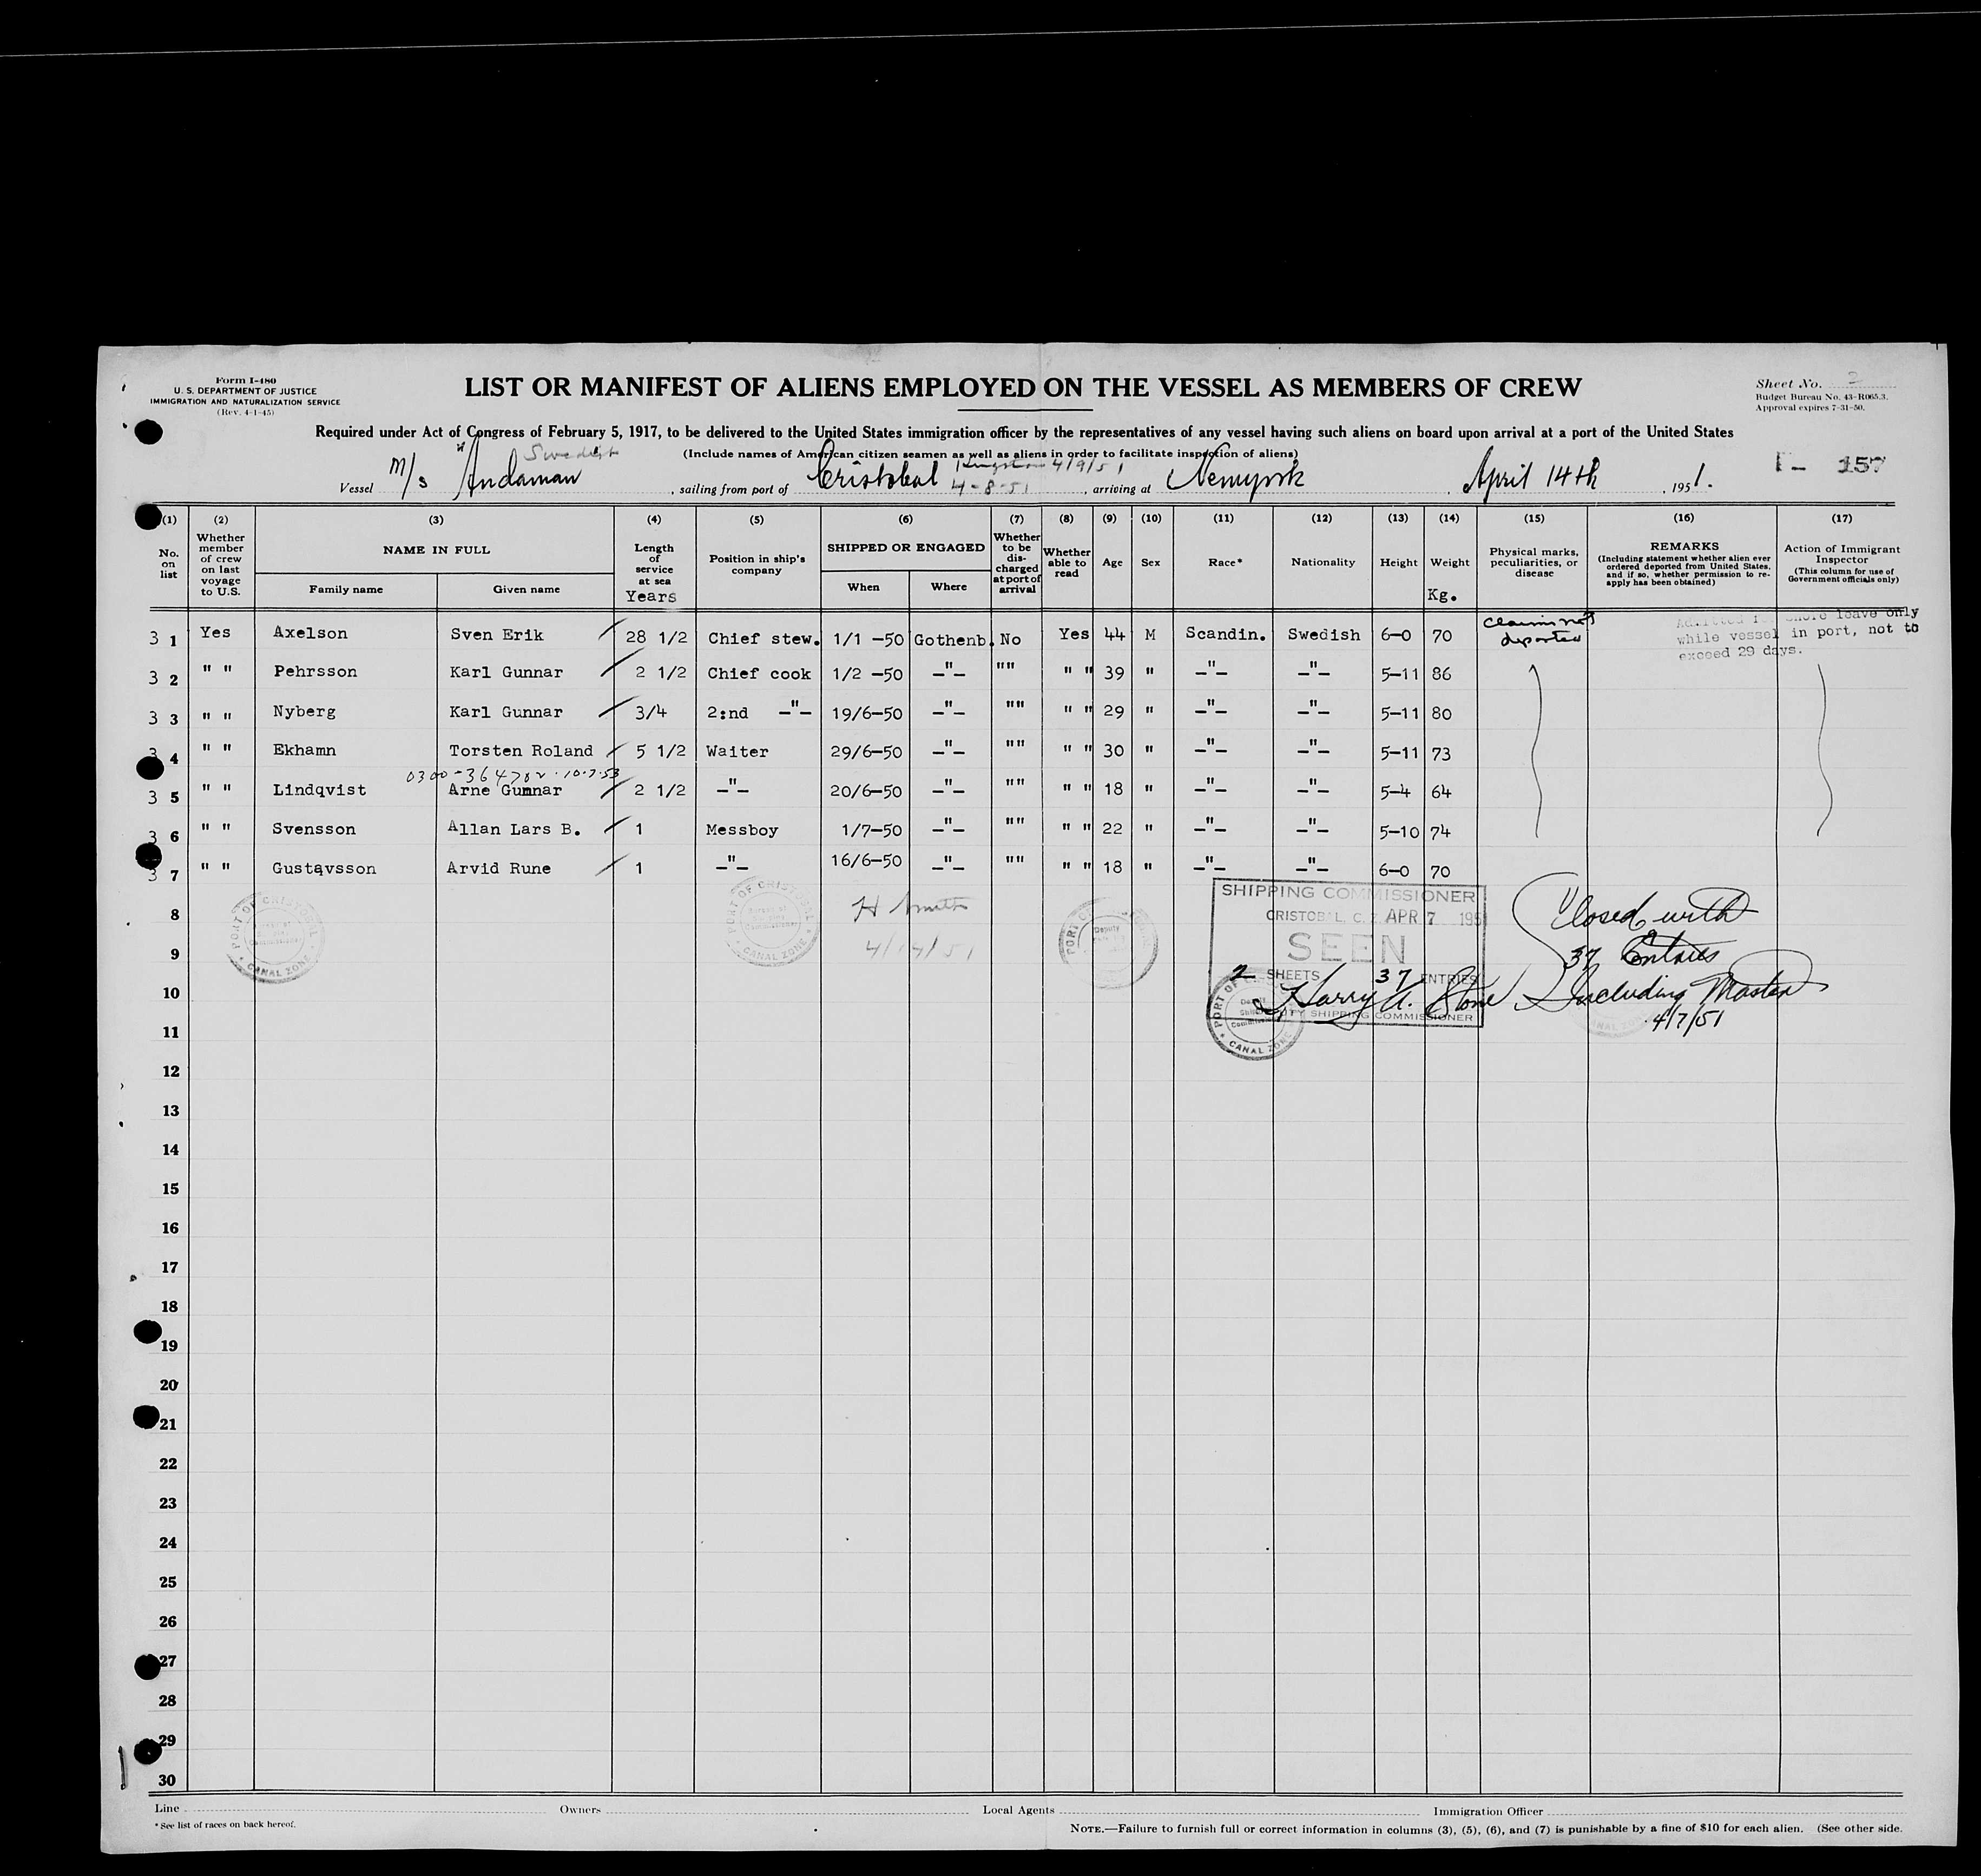 Form I-480
U. S. DEPARTMENT OF JUSTICE
IMMIGRATION AND NATURALIZATION SERVICE
(Rev. 4-1-45)
LIST OR MANIFEST OF ALIENS EMPLOYED ON THE VESSEL AS MEMBERS OF CREW
Sheet No. 2
Budget Bureau No. 43-R065.3.
Approval expires 7-31-50.
Required under Act of Congress of February 5, 1917, to be delivered to the United States immigration officer by the representatives of any vessel having such aliens on board upon arrival at a port of the United States
(Include names of American citizen seamen as well as aliens in order to facilitate inspection of aliens)
Swedish
Kingston 4/9/51
Vessel M/S "Andaman , sailing from port of Cristobal 4-8-51 , arriving at Newyork , April 14th , 1951.
157
(1) (2) (3) (4) (5) (6) (7) (8) (9) (10) (11) (12) (13) (14) (15) (16) (17)
No. on list
Whether member of crew on last voyage to U.S.
NAME IN FULL
Family name Given name
Length of service at sea
Years
Position in ship's company
SHIPPED OR ENGAGED
When Where
Whether to be discharged at port of arrival
Whether able to read
Age
Sex
Race*
Nationality
Height
Weight
Kg.
Physical marks, peculiarities, or disease
REMARKS
(Including statement whether alien ever ordered deported from United States, and if so, whether permission to reapply has been obtained)
Action of Immigrant Inspector
(This column for use of Government officials only)
3 1 Yes Axelson Sven Erik 28 1/2 Chief stew. 1/1 -50 Gothenb. No Yes 44 M Scandin. Swedish 6-0 70 Claims not deported
shore leave only
while vessel in port, not to
exceed 29 days.
3 2 " " Pehrsson Karl Gunnar 2 1/2 Chief cook 1/2 -50 -"- "" " " 39 " -"- -"- 5-11 86
3 3 " " Nyberg Karl Gunnar 3/4 2:nd -"- 19/6-50 -"- "" " " 29 " -"- -"- 5-11 80
3 4 " " Ekhamn Torsten Roland 5 1/2 Waiter 29/6-50 -"- "" " " 30 " -"- -"- 5-11 73
0300-364782 · 10-7-53
3 5 " " Lindqvist Arne Gunnar 2 1/2 -"- 20/6-50 -"- "" " " 18 " -"- -"- 5-4 64
3 6 " " Svensson Allan Lars B. 1 Messboy 1/7-50 -"- "" " " 22 " -"- -"- 5-10 74
3 7 " " Gustavsson Arvid Rune 1 -"- 16/6-50 -"- "" " " 18 " -"- -"- 6-0 70
8
9
10
11
12
13
14
15
16
17
18
19
20
21
22
23
24
25
26
27
28
29
30
PORT OF CRISTOBAL
CANAL ZONE
PORT OF CRISTOBAL
CANAL ZONE
H Smith
4/14/51
PORT
Deputy
SHIPPING COMMISSIONER
CRISTOBAL, C. Z. APR 7 195
SEEN
2 SHEETS 37 ENTRIES
Harry A. Stone
DEPUTY SHIPPING COMMISSIONER
PORT OF
CANAL ZONE
Closed with
37 Entries
Including Master
4/7/51
CANAL ZONE
Line Owners Local Agents Immigration Officer
* See list of races on back hereof.
NOTE.—Failure to furnish full or correct information in columns (3), (5), (6), and (7) is punishable by a fine of $10 for each alien. (See other side.